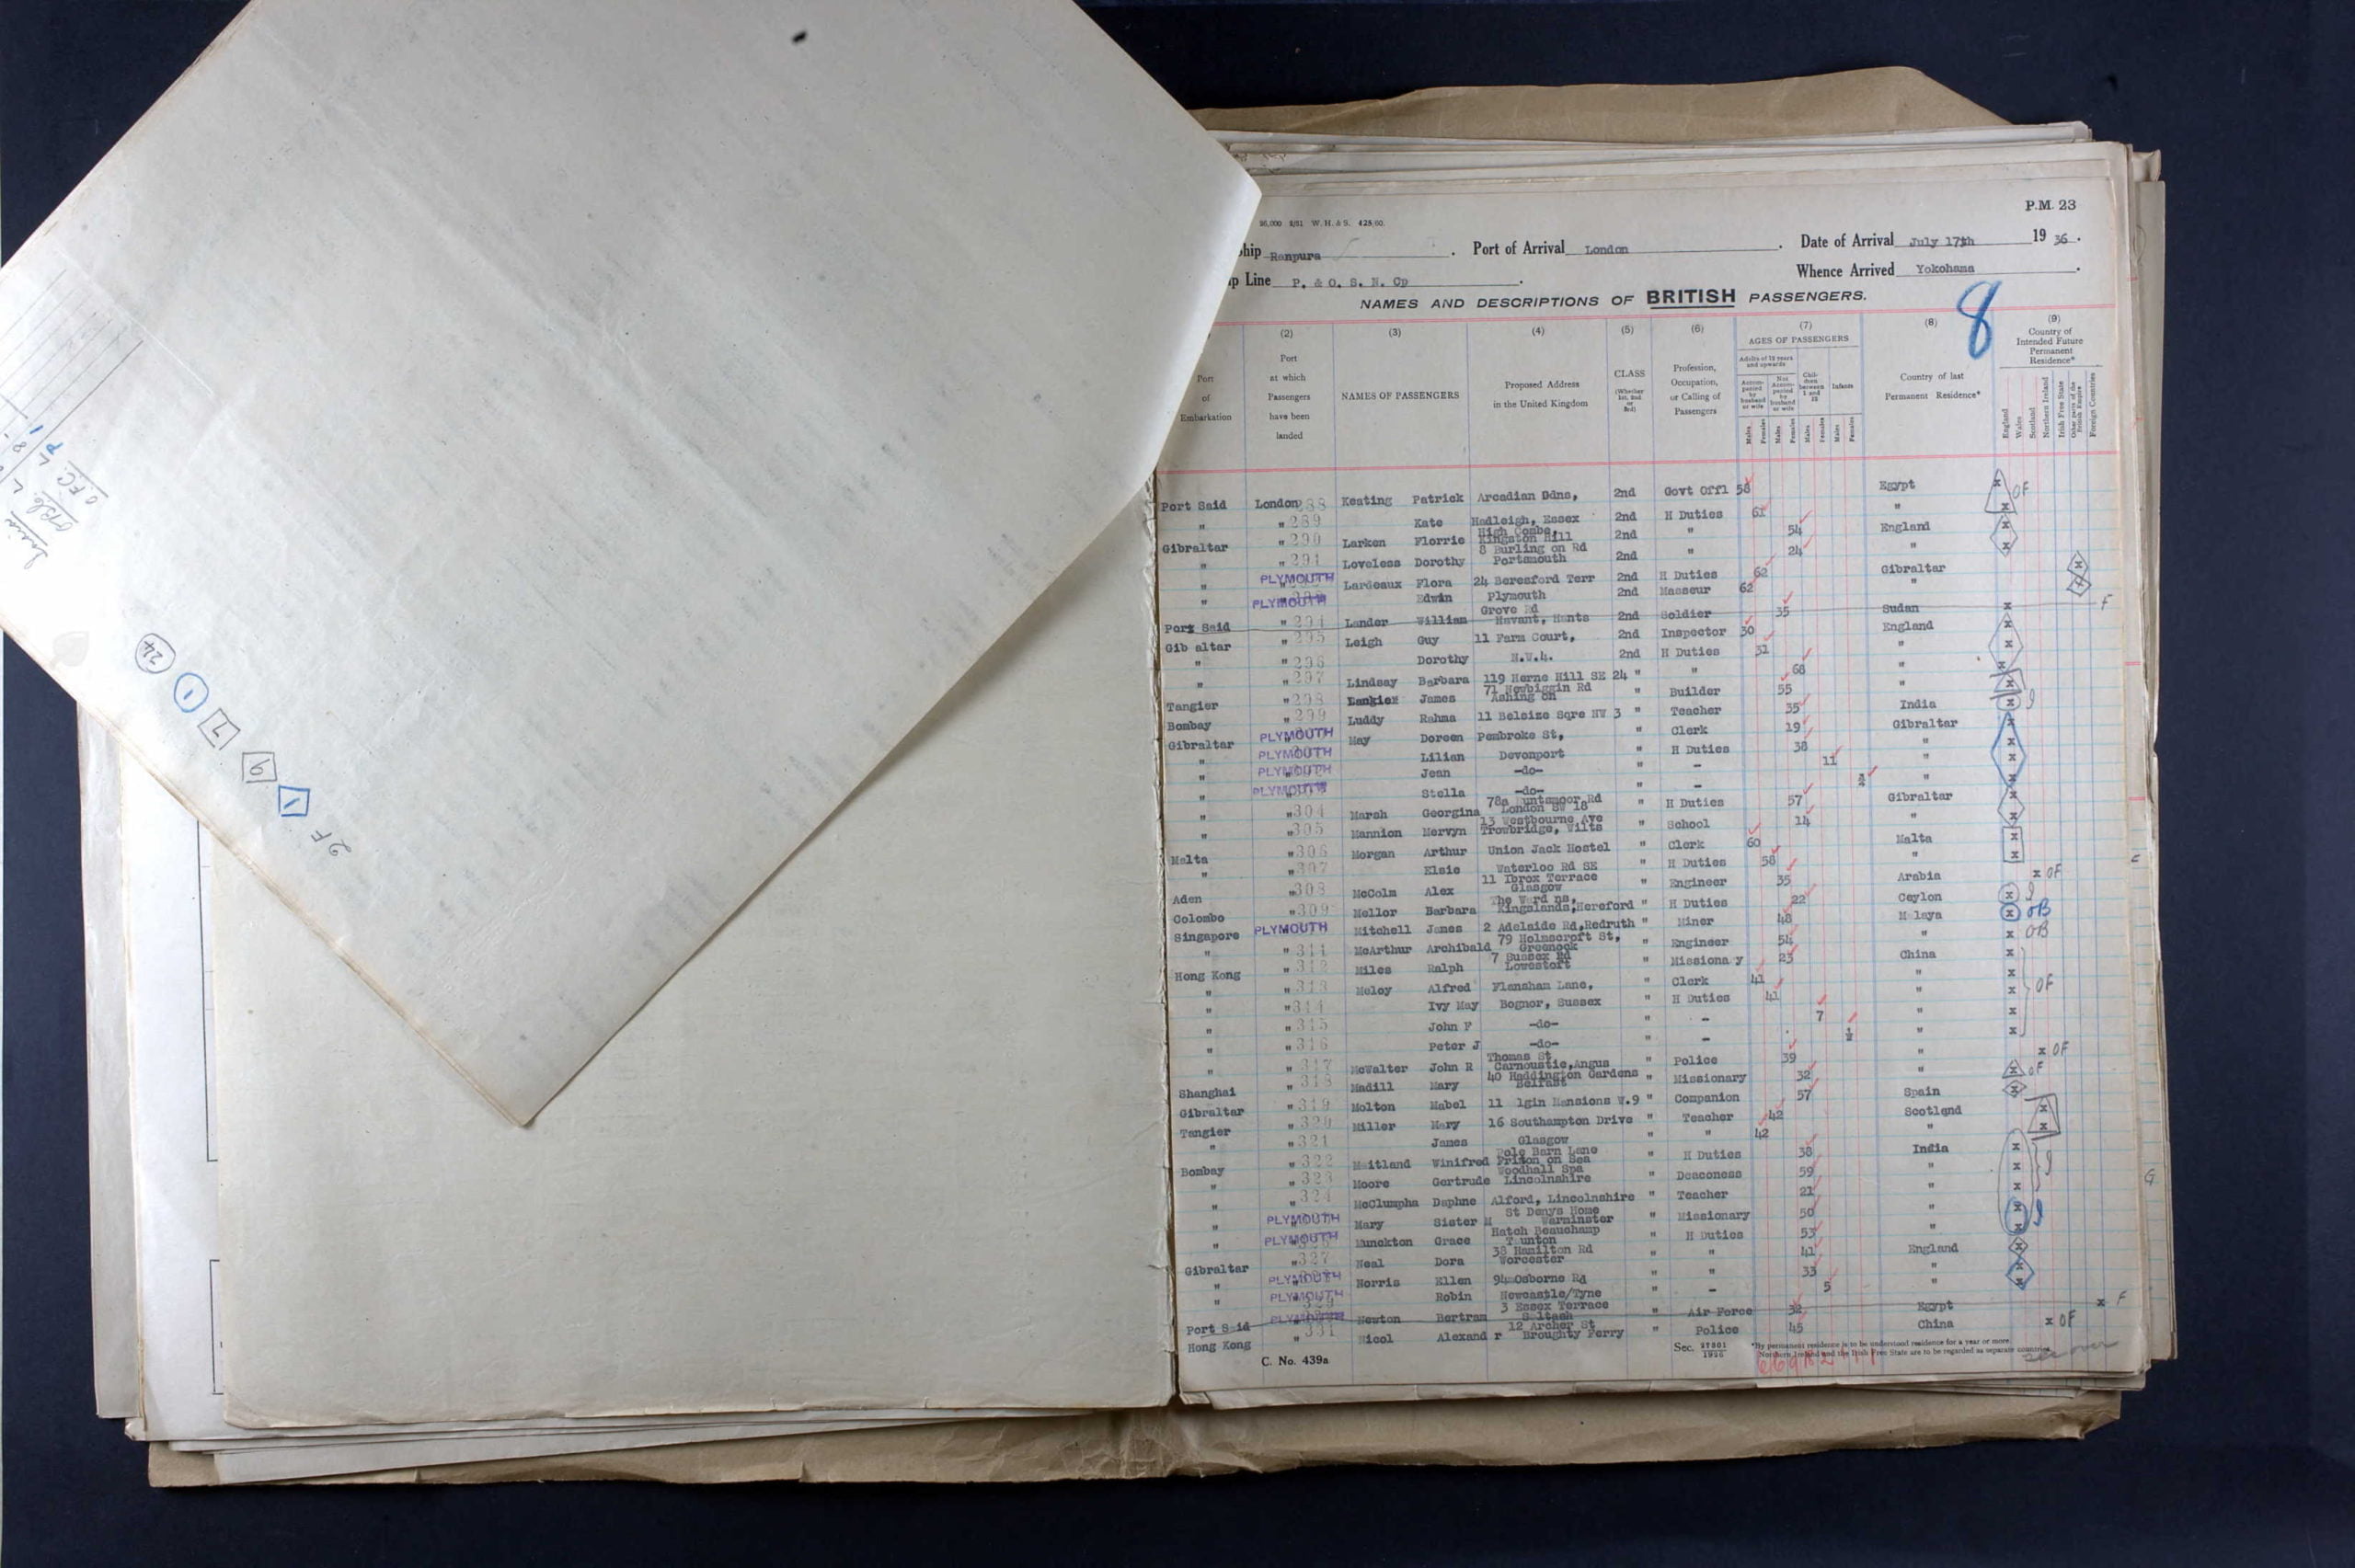 P.M. 23
W. H. & S.
Ranpura Port of Arrival London . Date of Arrival July 17th 19 36 .
Line P. & O. S. N. Cp . Whence Arrived Yokohama .
NAMES AND DESCRIPTIONS OF BRITISH PASSENGERS.
8
(2) (3) (4) (5) (6) (7) (8) (9)
Port of Embarkation
Port at which Passengers have been landed
NAMES OF PASSENGERS
Proposed Address in the United Kingdom
CLASS (Whether 1st, 2nd or 3rd)
Profession, Occupation, or Calling of Passengers
AGES OF PASSENGERS
Adults of 12 years and upwards
Accompanied by husband or wife
Not Accompanied by husband or wife
Children between 1 and 12
Infants
Males Females Males Females Males Females Males Females
Country of last Permanent Residence*
Country of Intended Future Permanent Residence*
England Wales Scotland Northern Ireland Irish Free State Other parts of the British Empire Foreign Countries
Port Said London 288 Keating Patrick Arcadian Gdns, 2nd Govt Offl 58 Egypt x OF
" " 289 Kate Hadleigh, Essex 2nd H Duties 61 " x
Gibraltar " 290 Larken Florrie High Combe, Kingston Hill 2nd " 54 England x
" " 291 Loveless Dorothy 8 Burling on Rd Portsmouth 2nd " 24 " x
" PLYMOUTH Lardeaux Flora 24 Beresford Terr 2nd H Duties 62 Gibraltar x
" PLYMOUTH Edwin Plymouth 2nd Masseur 62 " x
Port Said " 294 Lander William Grove Rd Havant, Hants 2nd Soldier 35 Sudan x F
Gib altar " 295 Leigh Guy 11 Farm Court, 2nd Inspector 30 England x
" " 296 Dorothy N.W.4. 2nd H Duties 31 " x
" " 297 Lindsay Barbara 119 Herne Hill SE 24 " " 68 " x
Tangier " 298 James 71 Newbiggin Rd Ashing on " Builder 55 " x
Bombay " 299 Luddy Rahma 11 Belsize Sqre NW 3 " Teacher 35 India x
Gibraltar PLYMOUTH May Doreen Pembroke St, " Clerk 19 Gibraltar x
" PLYMOUTH Lilian Devonport " H Duties 38 " x
" PLYMOUTH Jean -do- " - 11 " x
" PLYMOUTH Stella -do- " - " x
" " 304 Marsh Georgina 78a Huntsmoor Rd London SW 18 " H Duties 57 Gibraltar x
" " 305 Mannion Mervyn 13 Westbourne Ave Trowbridge, Wilts " School 14 " x
Malta " 306 Morgan Arthur Union Jack Hostel " Clerk 60 Malta x
" " 307 Elsie Waterloo Rd SE " H Duties 58 " x
Aden " 308 McColm Alex 11 Ibrox Terrace Glasgow " Engineer 35 Arabia x OF
Colombo " 309 Mellor Barbara The Ward ns, Kingslands, Hereford " H Duties 22 Ceylon x
Singapore PLYMOUTH Mitchell James 2 Adelaide Rd, Redruth " Miner 48 M laya x OB
" " 311 McArthur Archibald 79 Holmscroft St, Greenock " Engineer 54 " x OB
Hong Kong " 312 Miles Ralph 7 Sussex Rd Lowestoft " Missiona y 23 China x
" " 313 Meloy Alfred Flansham Lane, " Clerk 41 " x OF
" " 314 Ivy May Bognor, Sussex " H Duties 41 " x
" " 315 John F -do- " - 7 " x
" " 316 Peter J -do- " - " x
" " 317 McWalter John R Thomas St Carnoustie, Angus " Police 39 " x OF
Shanghai " 318 Madill Mary 40 Haddington Gardens Belfast " Missionary 32 " x OF
Gibraltar " 319 Molton Mabel 11 lgin Mansions W.9 " Companion 57 Spain x
Tangier " 320 Miller Mary 16 Southampton Drive " Teacher 42 Scotland x
" " 321 James Glasgow " " 42 " x
Bombay " 322 Maitland Winifred Pole Barn Lane Frinton on Sea " H Duties 38 India x
" " 323 Moore Gertrude Woodhall Spa Lincolnshire " Deaconess 59 " x
" " 324 McClumpha Daphne Alford, Lincolnshire " Teacher 21 " x
" PLYMOUTH Mary Sister M St Denys Home Warminster " Missionary 50 " x
" PLYMOUTH Munckton Grace Hatch Beauchamp Taunton " H Duties 53 " x
Gibraltar " 327 Neal Dora 38 Hamilton Rd Worcester " " 41 England x
" PLYMOUTH Norris Ellen 94 Osborne Rd " " 33 " x
" PLYMOUTH Robin Newcastle/Tyne " - 5 " x
Port S id PLYMOUTH Newton Bertram 3 Essex Terrace Saltash " Air Force 32 Egypt x F
Hong Kong " 331 Nicol Alexand r 12 Archer St Broughty Ferry " Police 45 China x OF
C. No. 439a
Sec. 27801 1926
*By permanent residence is to be understood residence for a year or more.
Northern Ireland and the Irish Free State are to be regarded as separate countries.
see over
24
1
7
9
1
2 F